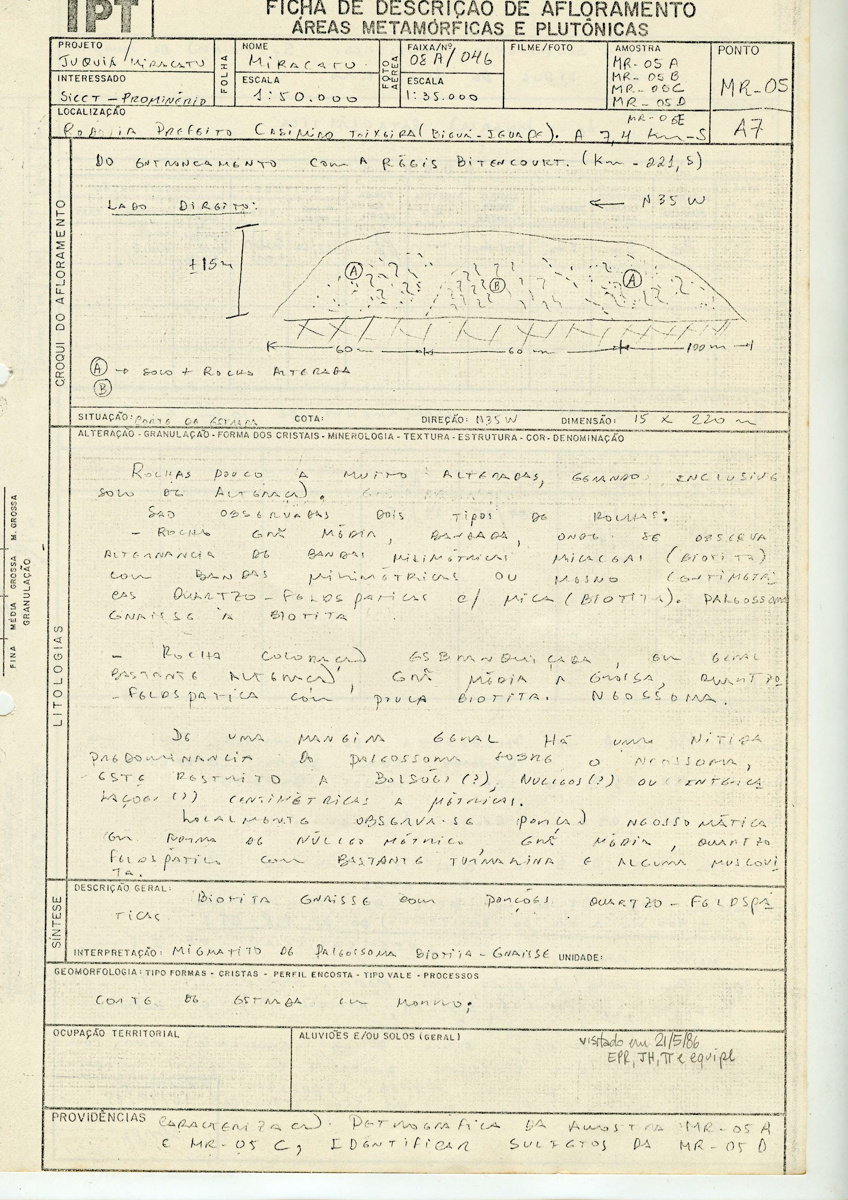 IPT
FICHA DE DESCRIÇÃO DE AFLORAMENTO
ÁREAS METAMÓRFICAS E PLUTÔNICAS
PROJETO
JUQUIÁ/MIRACATU
INTERESSADO
SICCT - PROMINÉRIO
FOLHA
NOME
MIRACATU
ESCALA
1:50.000
FOTO AÉREA
FAIXA/Nº
08A/046
ESCALA
1:35.000
FILME/FOTO
AMOSTRA
MR-05 A
MR-05 B
MR-05 C
MR-05 D
MR-05E
PONTO
MR-05
A7
LOCALIZAÇÃO
RODOVIA PREFEITO CASIMIRO TEIXEIRA (BIGUÁ-IGUAPE). A 7,4 Km-S
DO ENTRONCAMENTO COM A RÉGIS BITENCOURT. (Km-221,5)
CROQUI DO AFLORAMENTO
LADO DIREITO:
← N35W
±15m
A B A
60m 60m 100m
A → SOLO + ROCHA ALTERADA
B
SITUAÇÃO: CORTE DE ESTRADA COTA: DIREÇÃO: N35W DIMENSÃO: 15 X 220 m
ALTERAÇÃO - GRANULAÇÃO - FORMA DOS CRISTAIS - MINEROLOGIA - TEXTURA - ESTRUTURA - COR - DENOMINAÇÃO
FINA MÉDIA GROSSA M. GROSSA
GRANULAÇÃO
LITOLOGIAS
ROCHAS POUCO A MUITO ALTERADAS, GERANDO INCLUSIVE
SOLO DE ALTERAÇÃO.
SÃO OBSERVADAS DOIS TIPOS DE ROCHAS:
- ROCHA GRÃ MÉDIA, BANDADA, ONDE SE OBSERVA
ALTERNANCIA DE BANDAS MILIMÉTRICAS MICACEAS (BIOTITA)
COM BANDAS MILIMÉTRICAS OU MESMO CENTIMÉTRI
CAS QUARTZO-FELDSPATICAS C/ MICA (BIOTITA). PALEOSSOMA
GNAISSE A BIOTITA
- ROCHA COLORAÇÃO ESBRANQUIÇADA, EM GERAL
BASTANTE ALTERAÇÃO, GRÃ MÉDIA A GROSSA, QUARTZO
-FELDSPATICA COM POUCA BIOTITA. NEOSSOMA.
DE UMA MANEIRA GERAL HÁ UMA NÍTIDA
PREDOMINANCIA DO PALEOSSOMA SOBRE O NEOSSOMA,
ESTE RESTRITO A BOLSÕES(?), NUCLEOS(?) OU INTERCA
LAÇÕES(?) CENTIMÉTRICAS A MÉTRICAS.
LOCALMENTE OBSERVA-SE PORÇÃO NEOSSOMÁTICA
EM FORMA DE NÚCLEO MÉTRICO, GRÃ MÉDIA, QUARTZO
FELDSPÁTICO COM BASTANTE TURMALINA E ALGUMA MUSCOVI
TA.
SÍNTESE
DESCRIÇÃO GERAL:
BIOTITA GNAISSE COM PORÇÕES QUARTZO-FELDSPÁ
TICAS
INTERPRETAÇÃO: MIGMATITO DE PALEOSSOMA BIOTITA-GNAISSE UNIDADE:
GEOMORFOLOGIA: TIPO FORMAS - CRISTAS - PERFIL ENCOSTA - TIPO VALE - PROCESSOS
CORTE DE ESTRADA EM MORRO;
OCUPAÇÃO TERRITORIAL
ALUVIÕES E/OU SOLOS (GERAL)
visitado em 21/5/86
EPR, JH, π e equipe
PROVIDÊNCIAS
CARACTERIZAÇÃO PETROGRÁFICA DA AMOSTRA MR-05 A
E MR-05 C, IDENTIFICAR SULFETOS DA MR-05 D